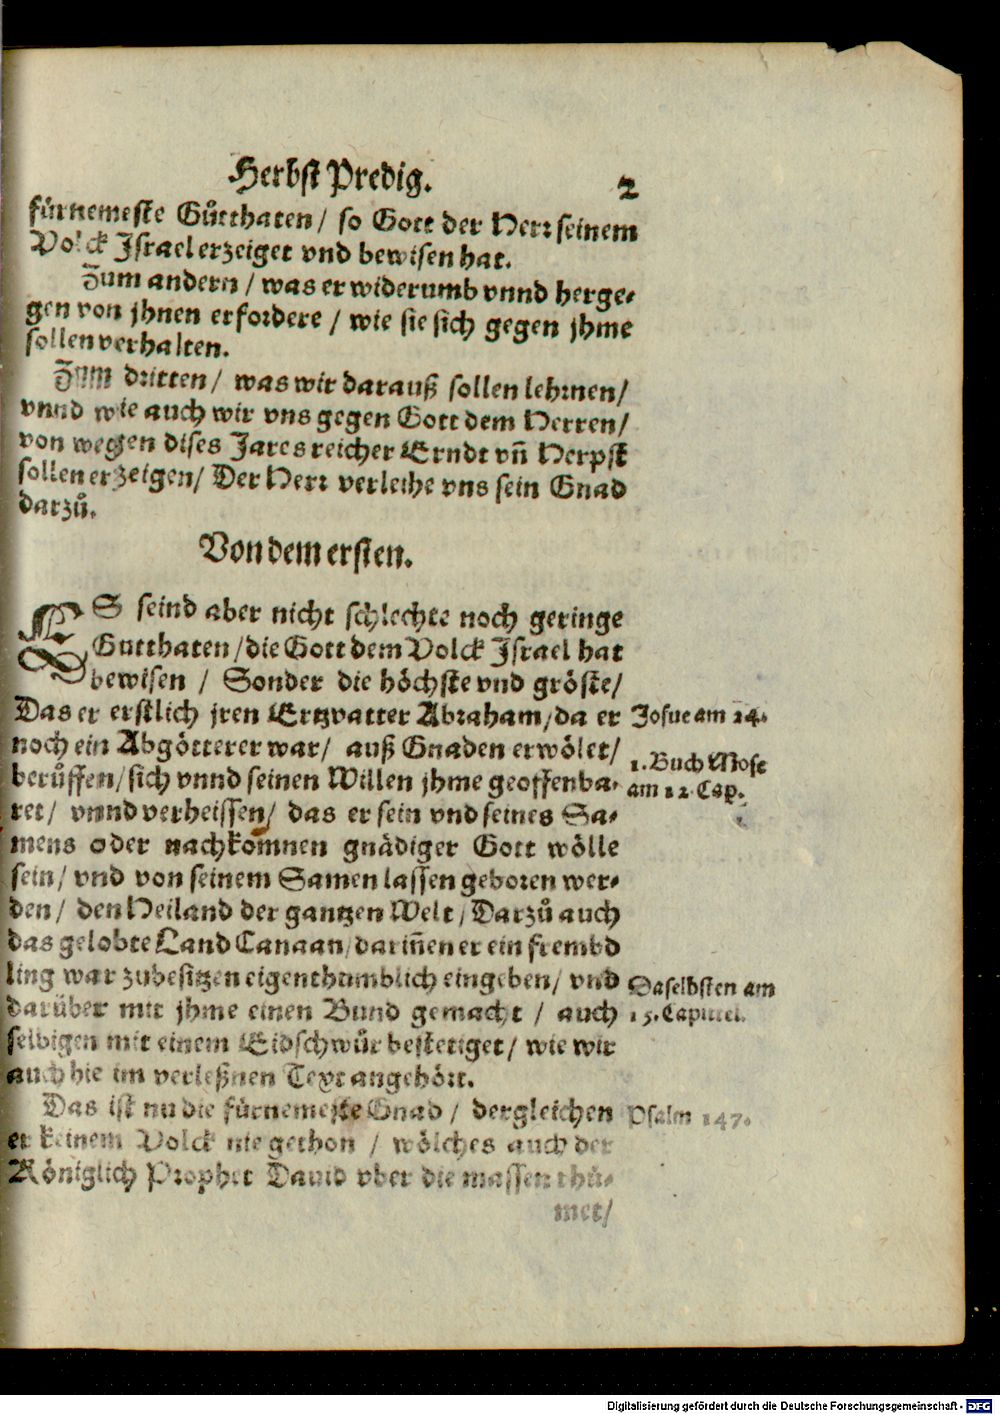 Herbst Predig. 2
fürnemeste Gůtthaten / so Gott der Herr seinem
Volck Israel erzeiget vnd bewisen hat.
Zum andern / was er widerumb vnnd herge-
gen von jhnen erfordere / wie sie sich gegen jhme
sollen verhalten.
Zum dritten / was wir darauß sollen lehrnen /
vnnd wie auch wir vns gegen Gott dem Herren /
von wegen dises Jares reicher Erndt vñ Herpst
sollen erzeigen / Der Herr verleihe vns sein Gnad
darzů.
Von dem ersten.
ES seind aber nicht schlechte noch geringe
Gutthaten / die Gott dem Volck Israel hat
bewisen / Sonder die höchste vnd gröste /
Das er erstlich jren Ertzvatter Abraham / da er
Josue am 24.
noch ein Abgötterer war / auß Gnaden erwölet /
1. Buch Mose
berůffen / sich vnnd seinen Willen jhme geoffenba-
am 12 Cap.
ret / vnnd verheissen / das er sein vnd seines Sa-
mens oder nachkomnen gnädiger Gott wölle
sein / vnd von seinem Samen lassen geboren wer-
den / den Heiland der gantzen Welt / Darzů auch
das gelobte Land Canaan / dariñen er ein frembd
ling war zubesitzen eigenthumblich eingeben / vnd
Daselbsten am
darüber mit jhme einen Bund gemacht / auch
15. Capittel.
selbigen mit einem Eidschwůr bestetiget / wie wir
auch hie im verleßnen Text angehört.
Das ist nu die fürnemeste Gnad / dergleichen
Psalm 147.
er keinem Volck nie gethon / wölches auch der
Königlich Prophet Dauid vber die massen rhů-
met /
Digitalisierung gefördert durch die Deutsche Forschungsgemeinschaft - DFG